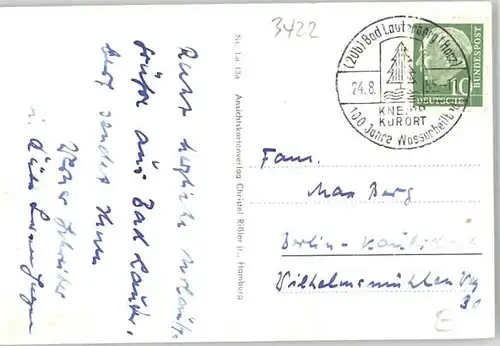 3422
Recht herzliche Urlaubs-
grüße aus Bad Lauter.
berg sendet Ihnen
Werner
u.
Nr. La 13a Ansichtskartenverlag Christel Rißler jr., Hamburg
(20b) Bad Lauterberg (Harz)
24.8.
KNEIPP
KURORT
100 Jahre Wasserheil
DEUTSCHE
BUNDESPOST
10
Fam.
Max Berg
Berlin-
Wilhelmsmühlen Weg
30
E